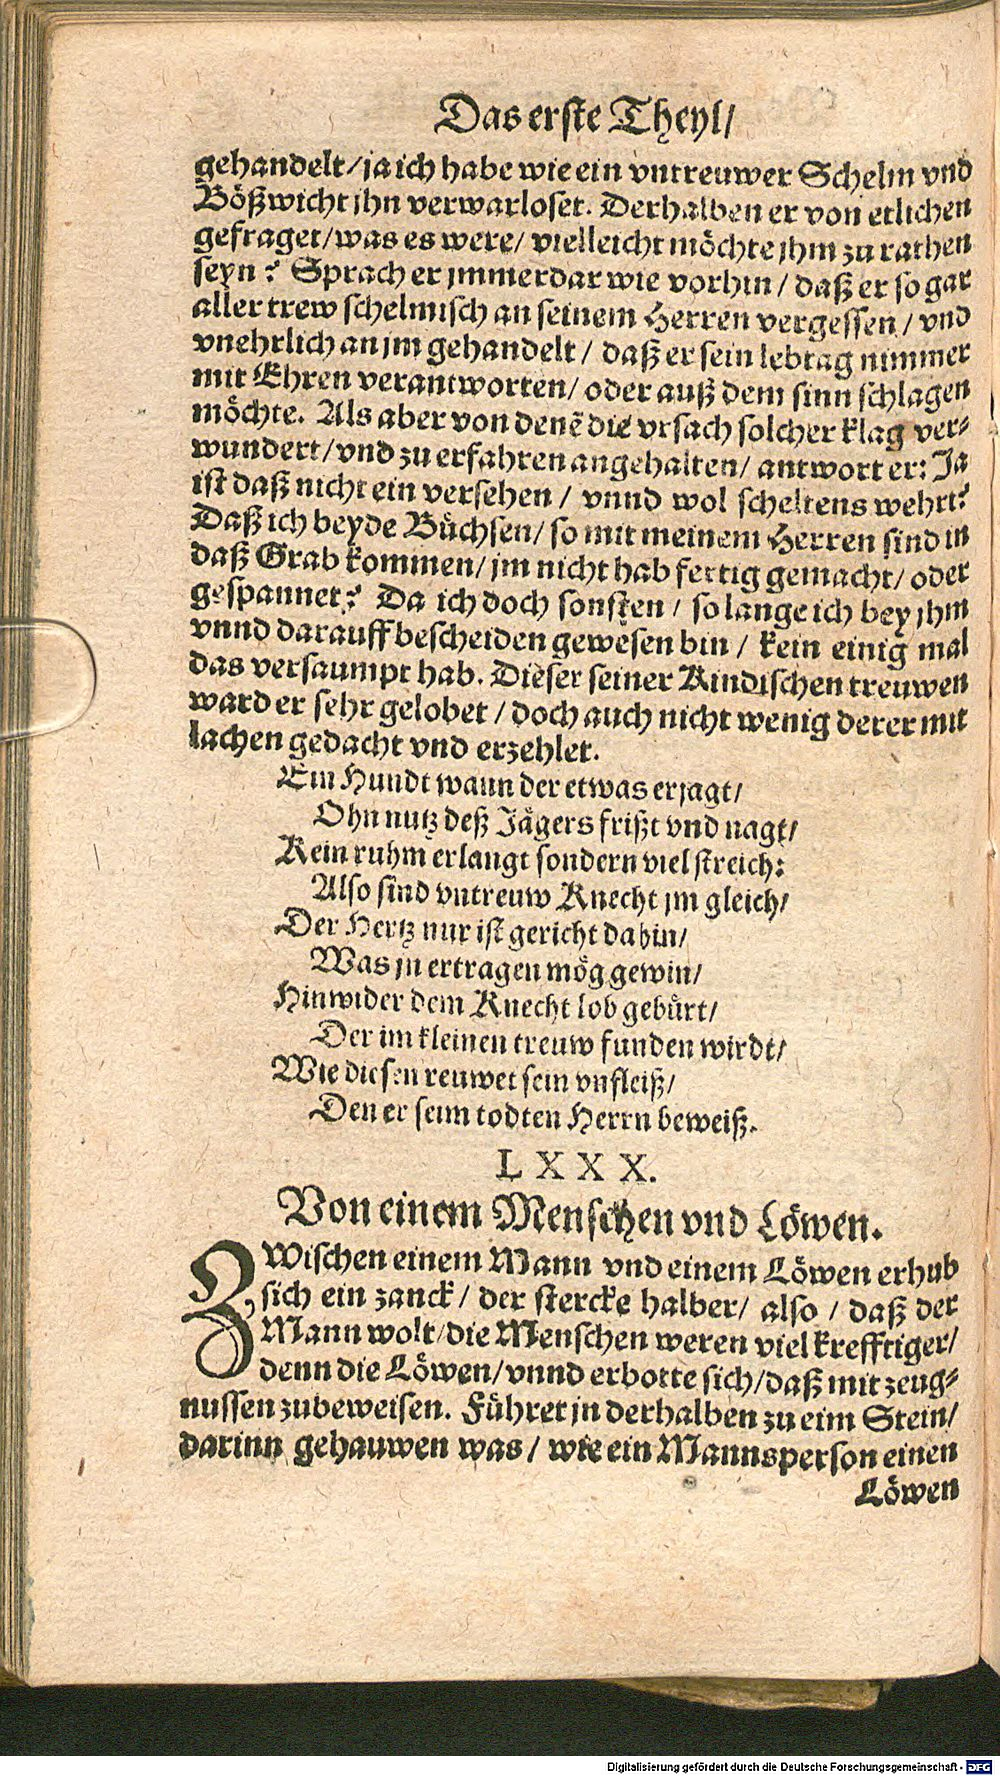 Das erste Theyl/
gehandelt/ja ich habe wie ein vntreuwer Schelm vnd
Bößwicht jhn verwarloset. Derhalben er von etlichen
gefraget/was es were/ vielleicht möchte jhm zu rathen
seyn? Sprach er jmmerdar wie vorhin/ daß er so gar
aller trew schelmisch an seinem Herren vergessen/ vnd
vnehrlich an jm gehandelt/ daß er sein lebtag nimmer
mit Ehren verantworten/ oder auß dem sinn schlagen
möchte. Als aber von denẽ die vrsach solcher klag ver-
wundert/vnd zu erfahren angehalten/ antwort er: Ja
ist daß nicht ein versehen/ vnnd wol scheltens wehrt?
Daß ich beyde Büchsen/ so mit meinem Herren sind in
daß Grab kommen/ jm nicht hab fertig gemacht/ oder
gespannet? Da ich doch sonsten/ so lange ich bey jhm
vnnd darauff bescheiden gewesen bin/ kein einig mal
das versaumpt hab. Dieser seiner Kindischen treuwen
ward er sehr gelobet/ doch auch nicht wenig derer mit
lachen gedacht vnd erzehlet.
Ein Hundt wann der etwas erjagt/
Ohn nutz deß Jägers frißt vnd nagt/
Kein ruhm erlangt sondern viel streich:
Also sind vntreuw Knecht jm gleich/
Der Hertz nur ist gericht dahin/
Was jn ertragen mög gewin/
Hinwider dem Knecht lob gebürt/
Der im kleinen treuw funden wirdt/
Wie diesen reuwet sein vnfleiß/
Den er seim todten Herrn beweiß.
LXXX.
Von einem Menschen vnd Löwen.
ZWischen einem Mann vnd einem Löwen erhub
sich ein zanck/ der stercke halber/ also/ daß der
Mann wolt/die Menschen weren viel krefftiger/
denn die Löwen/vnnd erbotte sich/daß mit zeug-
nussen zubeweisen. Führet jn derhalben zu eim Stein/
darinn gehauwen was/ wie ein Mannsperson einen
Löwen
Digitalisierung gefördert durch die Deutsche Forschungsgemeinschaft - DFG